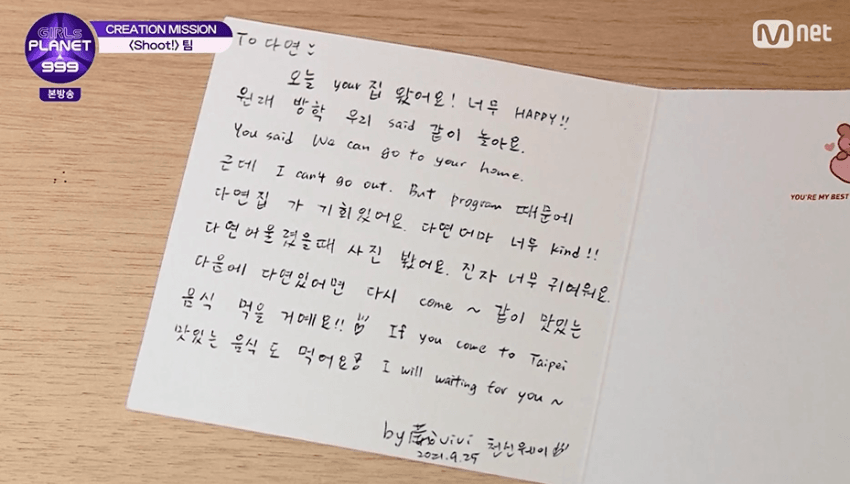 GIRLS
PLANET
999
본방송
CREATION MISSION
<Shoot!> 팀
Mnet
To 다연
오늘 your 집 왔어요! 너무 HAPPY!!
원래 방학 우리 said 같이 놀아요.
You said We can go to your home.
근데 I can't go out. But program 때문에
다연집 가 기회있어요. 다연어마 너무 kind!!
다연어울렸을때 사진 봤어요. 진자 너무 귀여워요.
다음에 다연있어면 다시 come ~ 같이 맛있는
음식 먹을 거예요!! If you come to Taipei
맛있는 음식 도 먹어요 I will waiting for you ~
by vivi 천신웨이
2021.9.25
YOU'RE MY BEST